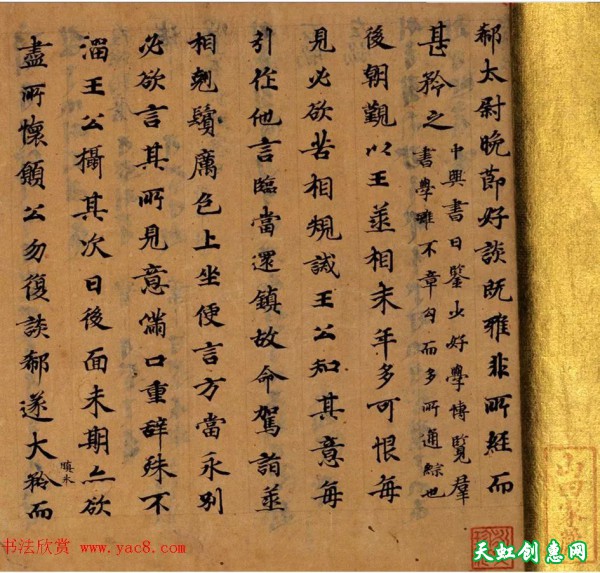 郗太尉晚節好談既雅非所經而
甚矜之中興書曰鑒少好學博覽羣
書學雖不章勾而多所通綜也
後朝覲以王丞相末年多可恨每
見必欲苦相規誡王公知其意每
引作他言臨當還鎮故命駕詣丞
相翹鬚厲色上坐便言方當永別
必欲言其所見意滿口重辞殊不
溜王公攝其次曰後面未期亦欲
盡所懷願公勿復談郗遂大瞋
冰矜而
书法欣赏 www.yac8.com
天虹创惠网